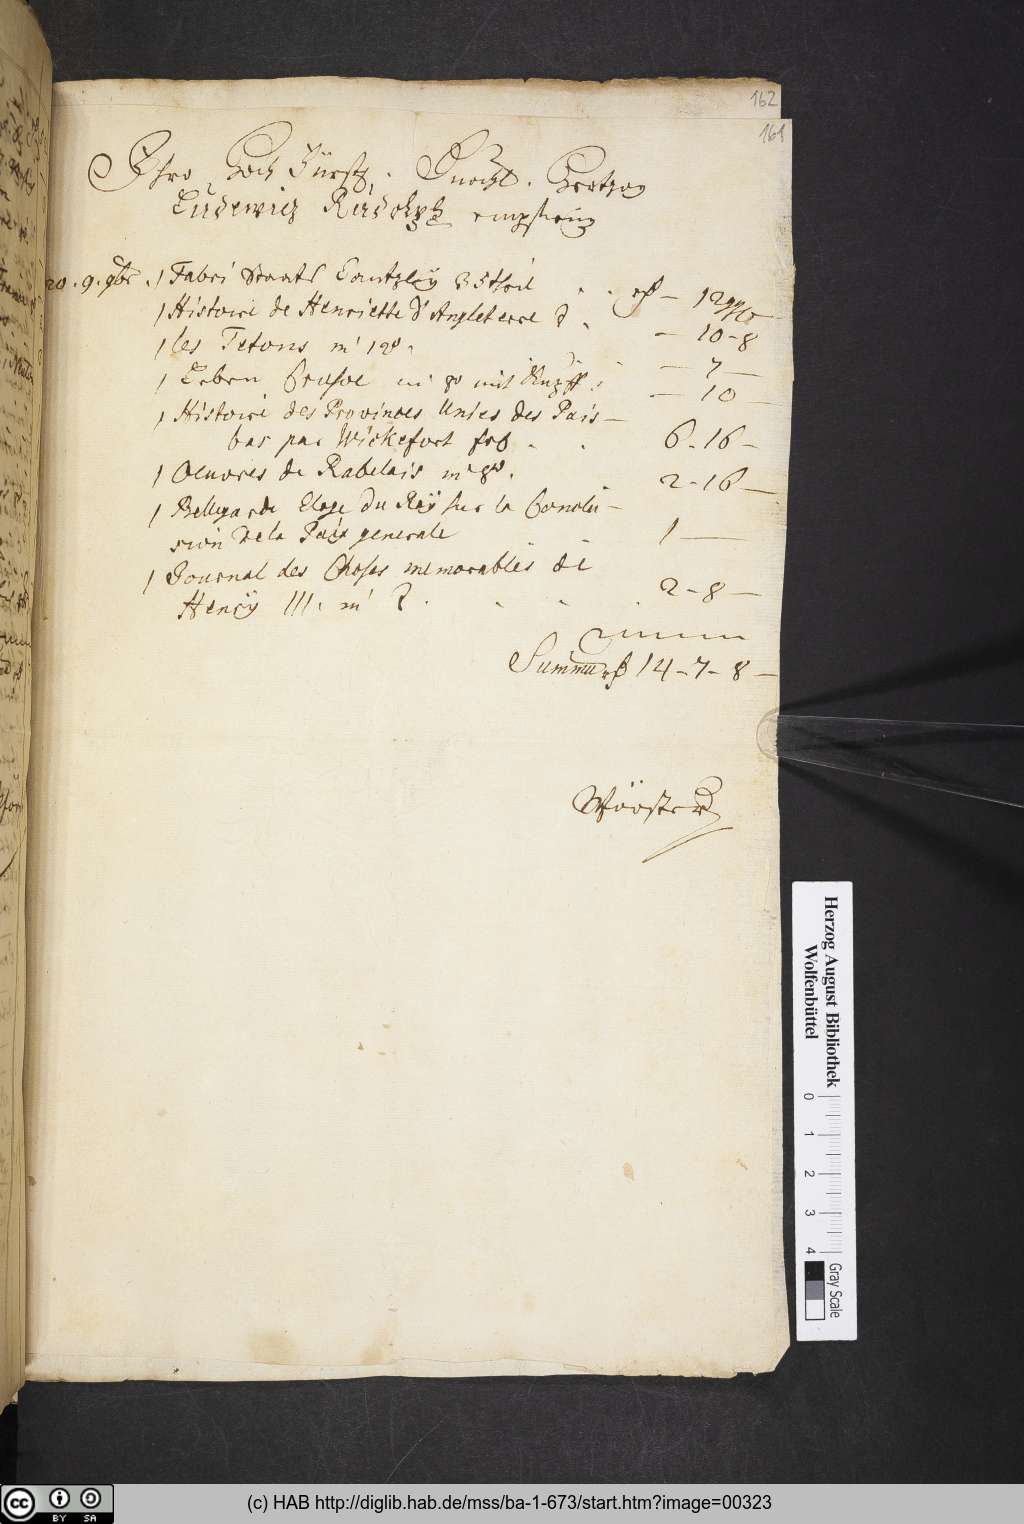 162
161
Ihro Hoch Fürstl. Durchl. Hertzog
Ludewig Rudolph empfing
20. 9. 9br. 1 Fabri Staats Cantzley 35 theil . . rth – 12 ggr
1 Histoire de Henriette d'Angleterre 8 . – 10 - 8
1 les Tetons in 12º . – 7 –
1 Leben Crusoe in 8º mit Kupff : – 10 –
1 Histoire des Provinces Unies des Pais –
bas par Wickefort fol . . 6 - 16 –
1 Oeuvres de Rabelais in 8º . 2 - 16 –
1 Bellegarde Eloge du Roÿ sur la Conclu –
sion de la Paix generale 1 –
1 Journal des Choses memorables de
Henrÿ III. in 8 . . . . 2 - 8 –
Summa rth 14 - 7 - 8 –
Herzog August Bibliothek
Wolfenbüttel
0 1 2 3 4
Gray Scale
cc BY SA
(c) HAB http://diglib.hab.de/mss/ba-1-673/start.htm?image=00323